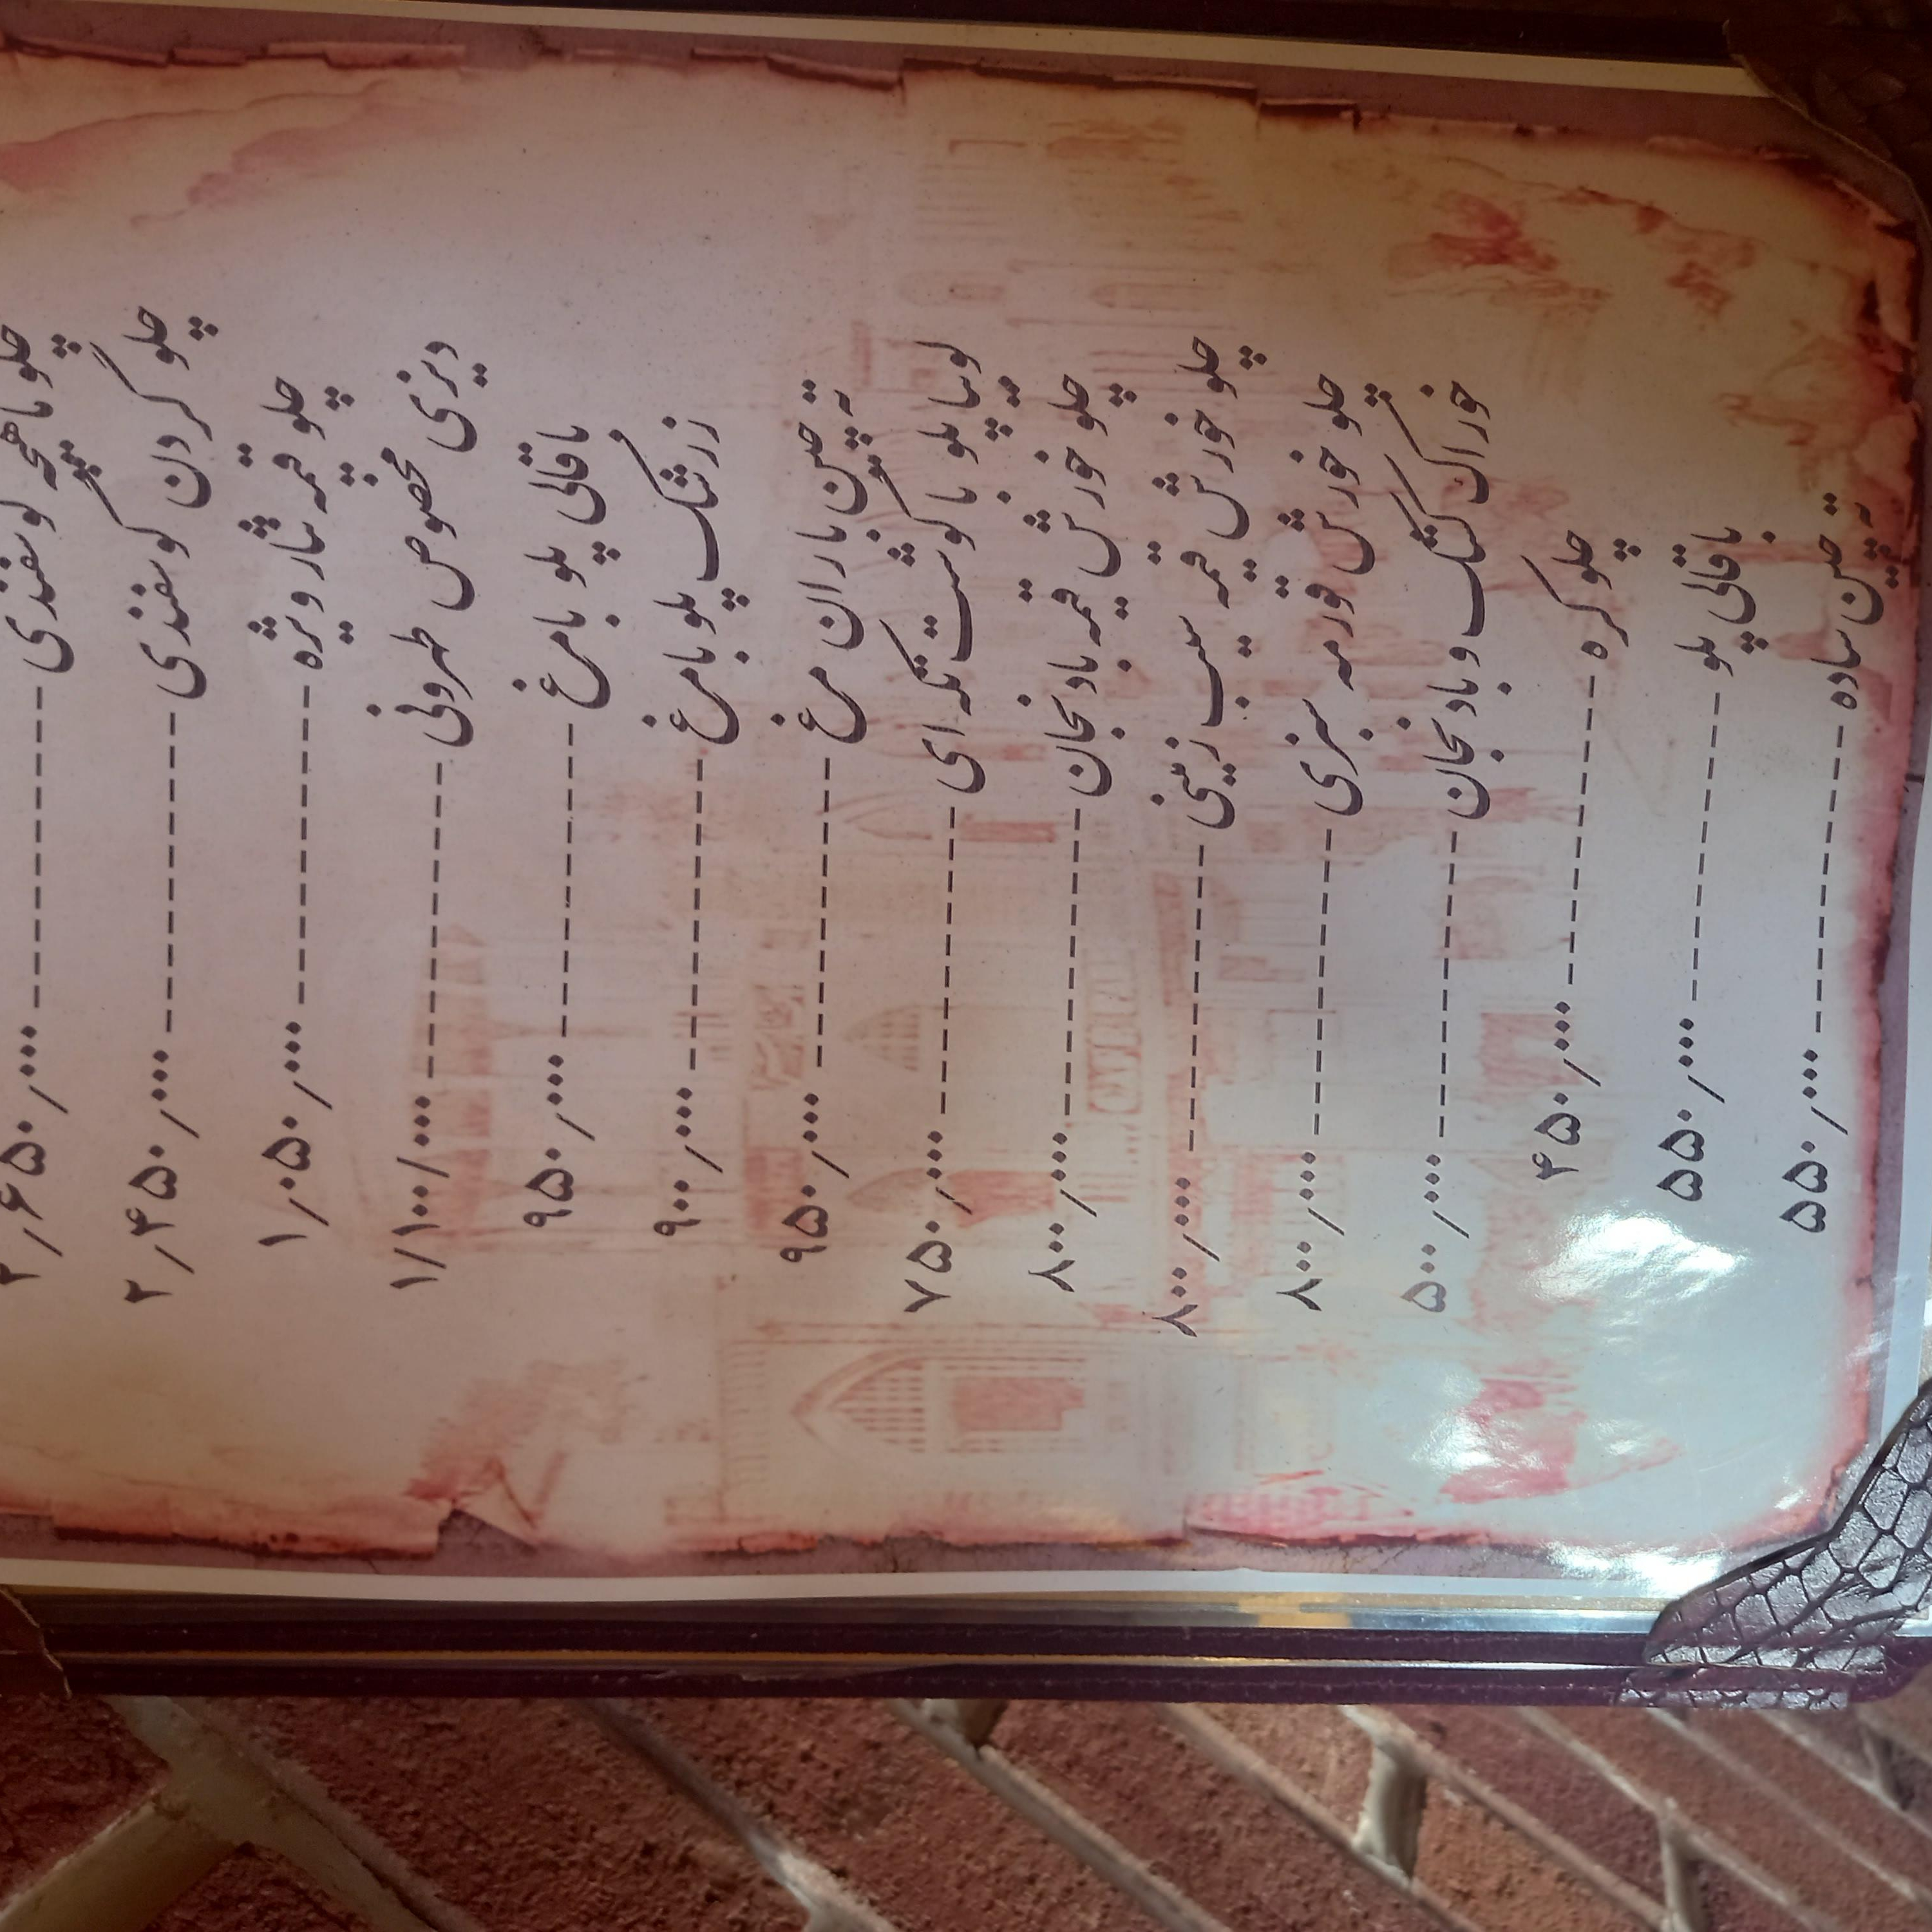 چلو ماهیچه گوسفندی ---------------- ۲,۶۵۰,۰۰۰
چلو گردن گوسفندی ---------------- ۲,۴۵۰,۰۰۰
چلو قیمه نثار ویژه ---------------- ۱,۰۵۰,۰۰۰
دیزی مخصوص طهرونی ---------------- ۱/۱۰۰/۰۰۰
باقالی پلو با مرغ ---------------- ۹۵۰,۰۰۰
زرشک پلو با مرغ ---------------- ۹۰۰,۰۰۰
ته چین باران مرغ ---------------- ۹۵۰,۰۰۰
لوبیا پلو با گوشت تکه ای ---------------- ۷۵۰,۰۰۰
چلو خورش قیمه بادنجان ---------------- ۸۰۰,۰۰۰
چلو خورش قیمه سیب زمینی ---------------- ۸۰۰,۰۰۰
چلو خورش قورمه سبزی ---------------- ۸۰۰,۰۰۰
خوراک کشک و بادنجان ---------------- ۵۰۰,۰۰۰
چلو کره ---------------- ۴۵۰,۰۰۰
باقالی پلو ---------------- ۵۵۰,۰۰۰
ته چین ساده ---------------- ۵۵۰,۰۰۰